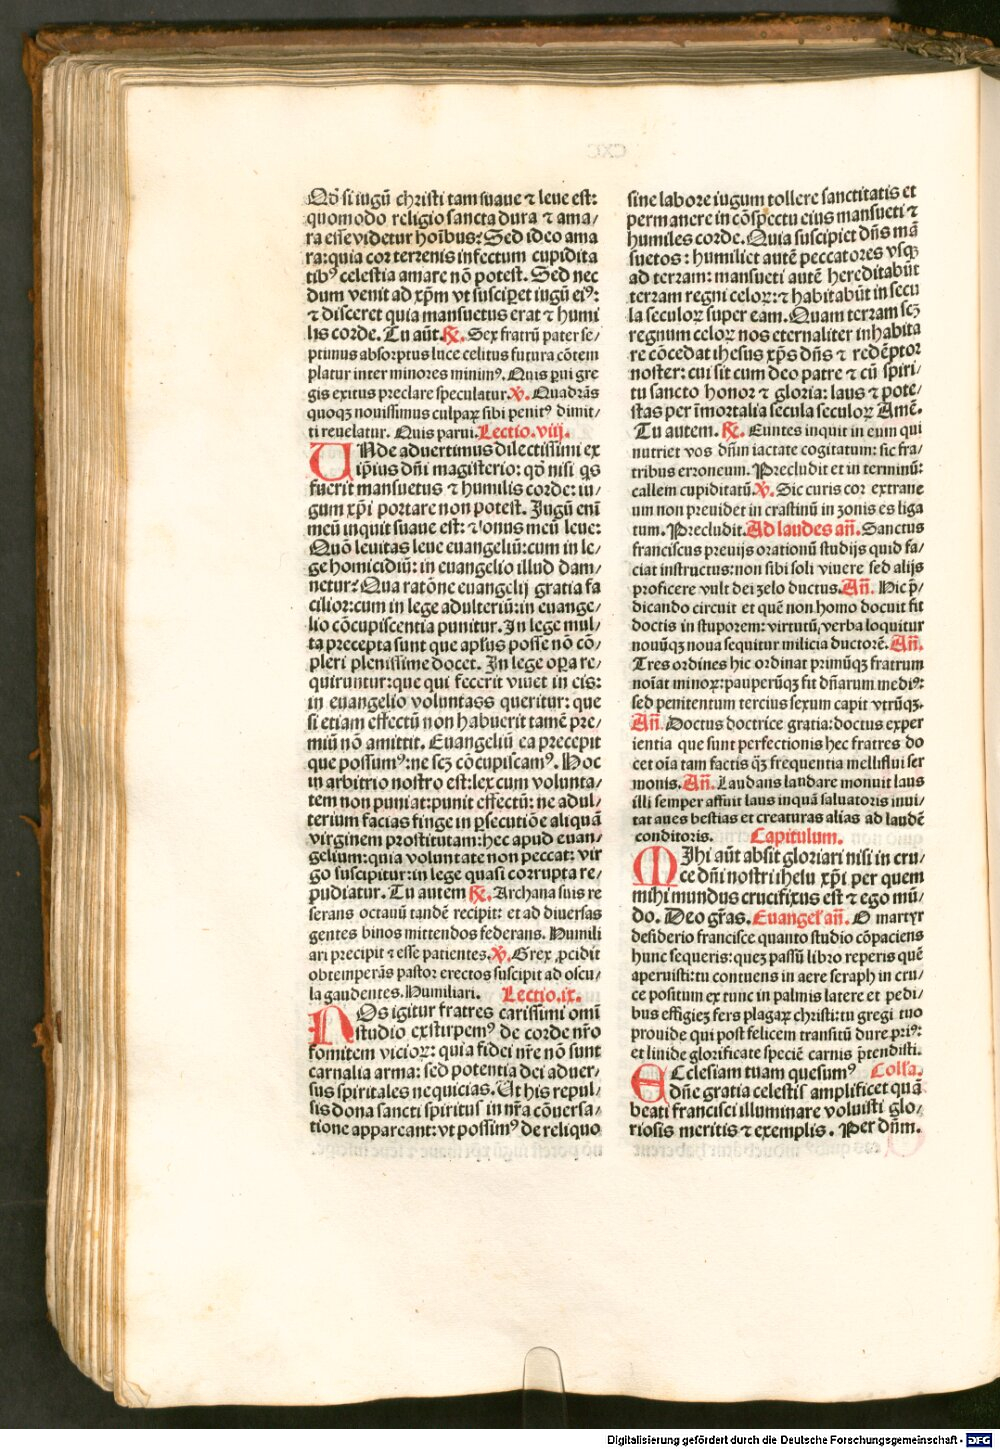 Qd̄ si iugū christi tam suaue ⁊ leue est:
quomodo religio sancta dura ⁊ ama/
ra esse videtur hoībus? Sed ideo ama
ra: quia cor terrenis infectum cupidita
tibꝰ celestia amare nō potest. Sed nec
dum venit ad xp̄m vt suscip̄et iugū eiꝰ:
⁊ disceret quia mansuetus erat ⁊ humi
lis corde. Tu aūt. ℟. Sex fratrū pater se/
ptimus absorptus luce celitus futura cōtem
platur inter minores minimꝰ. Quis pui gre
gis exitus preclare speculatur. ℣. Quadrās
quoqꝫ nouissimus culpaꝝ sibi penitꝰ dimit/
ti reuelatur. Quis parui. Lectio. viij.
UNde aduertimus dilectissimi ex
ip̄ius dn̄i magisterio: qd̄ nisi qs
fuerit mansuetus ⁊ humilis corde: iu/
gum xp̄i portare non potest. Jugū enī
meū inquit suaue est: ⁊ onus meū leue:
Quō leuitas leue euangeliū: cum in le/
ge homicidiū: in euangelio illud dam/
netur? Qua ratōne euangelij gratia fa
cilior: cum in lege adulteriū: in euange/
lio cōcupiscentia punitur. In lege mul/
ta precepta sunt que apl̄us posse nō cō/
pleri plenissime docet. In lege oꝑa re/
quiruntur: que qui fecerit viuet in eis:
in euangelio voluntass queritur: que
si etiam effectū non habuerit tamē pre/
miū nō amittit. Euangeliū ea precepit
que possumꝰ: ne scꝫ cōcupiscamꝰ. Hoc
in arbitrio nostro est: lex cum volunta/
tem non puniat: punit effectū: ne adul/
terium facias finge in ꝑsecutiōe aliquā
virginem prostitutam: hec apud euan/
gelium: quia voluntate non peccat: vir
go suscipitur: in lege quasi corrupta re/
pudiatur. Tu autem ℟. Archana suis re
serans octauū tandē recipit: et ad diuersas
gentes binos mittendos federans. Humili
ari precipit ⁊ esse patientes. ℣. Grex ꝓcidit
obtemperās pastor erectos suscipit ad oscu/
la gaudentes. Humiliari. Lectio. ix.
NOs igitur fratres carissimi omī
studio exstirpemꝰ de corde nr̄o
fomitem vicioꝝ: quia fidei nr̄e nō sunt
carnalia arma: sed potentia dei aduer/
sus spiritales nequicias. Ut his repul/
sis dona sancti spiritus in nr̄a cōuersa/
tione appareant: vt possimꝰ de reliquo
sine labore iugum tollere sanctitatis et
permanere in cōspectu eius mansueti ⁊
humiles corde. Quia suscipiet dn̄s mā
suetos: humiliet autē peccatores vsqꝫ
ad terram: mansueti autē hereditabūt
terram regni celoꝝ: ⁊ habitabūt in secu
la seculoꝝ super eam. Quam terram scꝫ
regnum celoꝝ nos eternaliter inhabita
re cōcedat ihesus xp̄s dn̄s ⁊ redēptor
noster: cui sit cum deo patre ⁊ cū spiri/
tu sancto honor ⁊ gloria: laus ⁊ pote/
stas per īmortalia secula seculoꝝ Amē.
Tu autem. ℟. Euntes inquit in eum qui
nutriet vos dn̄m iactate cogitatum: sic fra/
tribus erroneum. Precludit et in terminū:
callem cupiditatū. ℣. Sic curis cor extrane
um non preuidet in crastinū in zonis es liga
tum. Precludit. Ad laudes añ. Sanctus
franciscus preuijs orationū studijs quid fa/
ciat instructus: non sibi soli viuere sed alijs
proficere vult dei zelo ductus. Añ. Hic p̄/
dicando circuit et quē non homo docuit fit
doctis in stuporem: virtutū verba loquitur
nouūqꝫ noua sequitur milicia ductorē. Añ.
Tres ordines hic ordinat primūqꝫ fratrum
noīat minoꝝ: pauperūqꝫ fit dn̄arum mediꝰ:
sed penitentum tercius sexum capit vtrūqꝫ.
Añ. Doctus doctrice gratia: doctus exper
ientia que sunt perfectionis hec fratres do
cet oīa tam factis qꝫ frequentia melliflui ser
monis. Añ. Laudans laudare monuit laus
illi semper affuit laus inquā saluatoris inui/
tat aues bestias et creaturas alias ad laudē
conditoris. Capitulum.
MIhi aūt absit gloriari nisi in cru/
ce dn̄i nostri ihesu xp̄i per quem
mihi mundus crucifixus est ⁊ ego mū/
do. Deo gr̄as. Euangeł añ. O martyr
desiderio francisce quanto studio cōpaciens
hunc sequeris: queꝫ passū libro reperis quē
aperuisti: tu contuens in aere seraph in cru/
ce positum ex tunc in palmis latere et pedi/
bus effigieꝫ fers plagaꝝ christi: tu gregi tuo
prouide qui post felicem transitū dure priꝰ:
et liuide glorificate speciē carnis p̄tendisti.
ECclesiam tuam quesumꝰ Coll̄a.
dn̄e gratia celestis amplificet quā
beati francisci illuminare voluisti glo/
riosis meritis ⁊ exemplis. Per dn̄m.
Digitalisierung gefördert durch die Deutsche Forschungsgemeinschaft - DFG